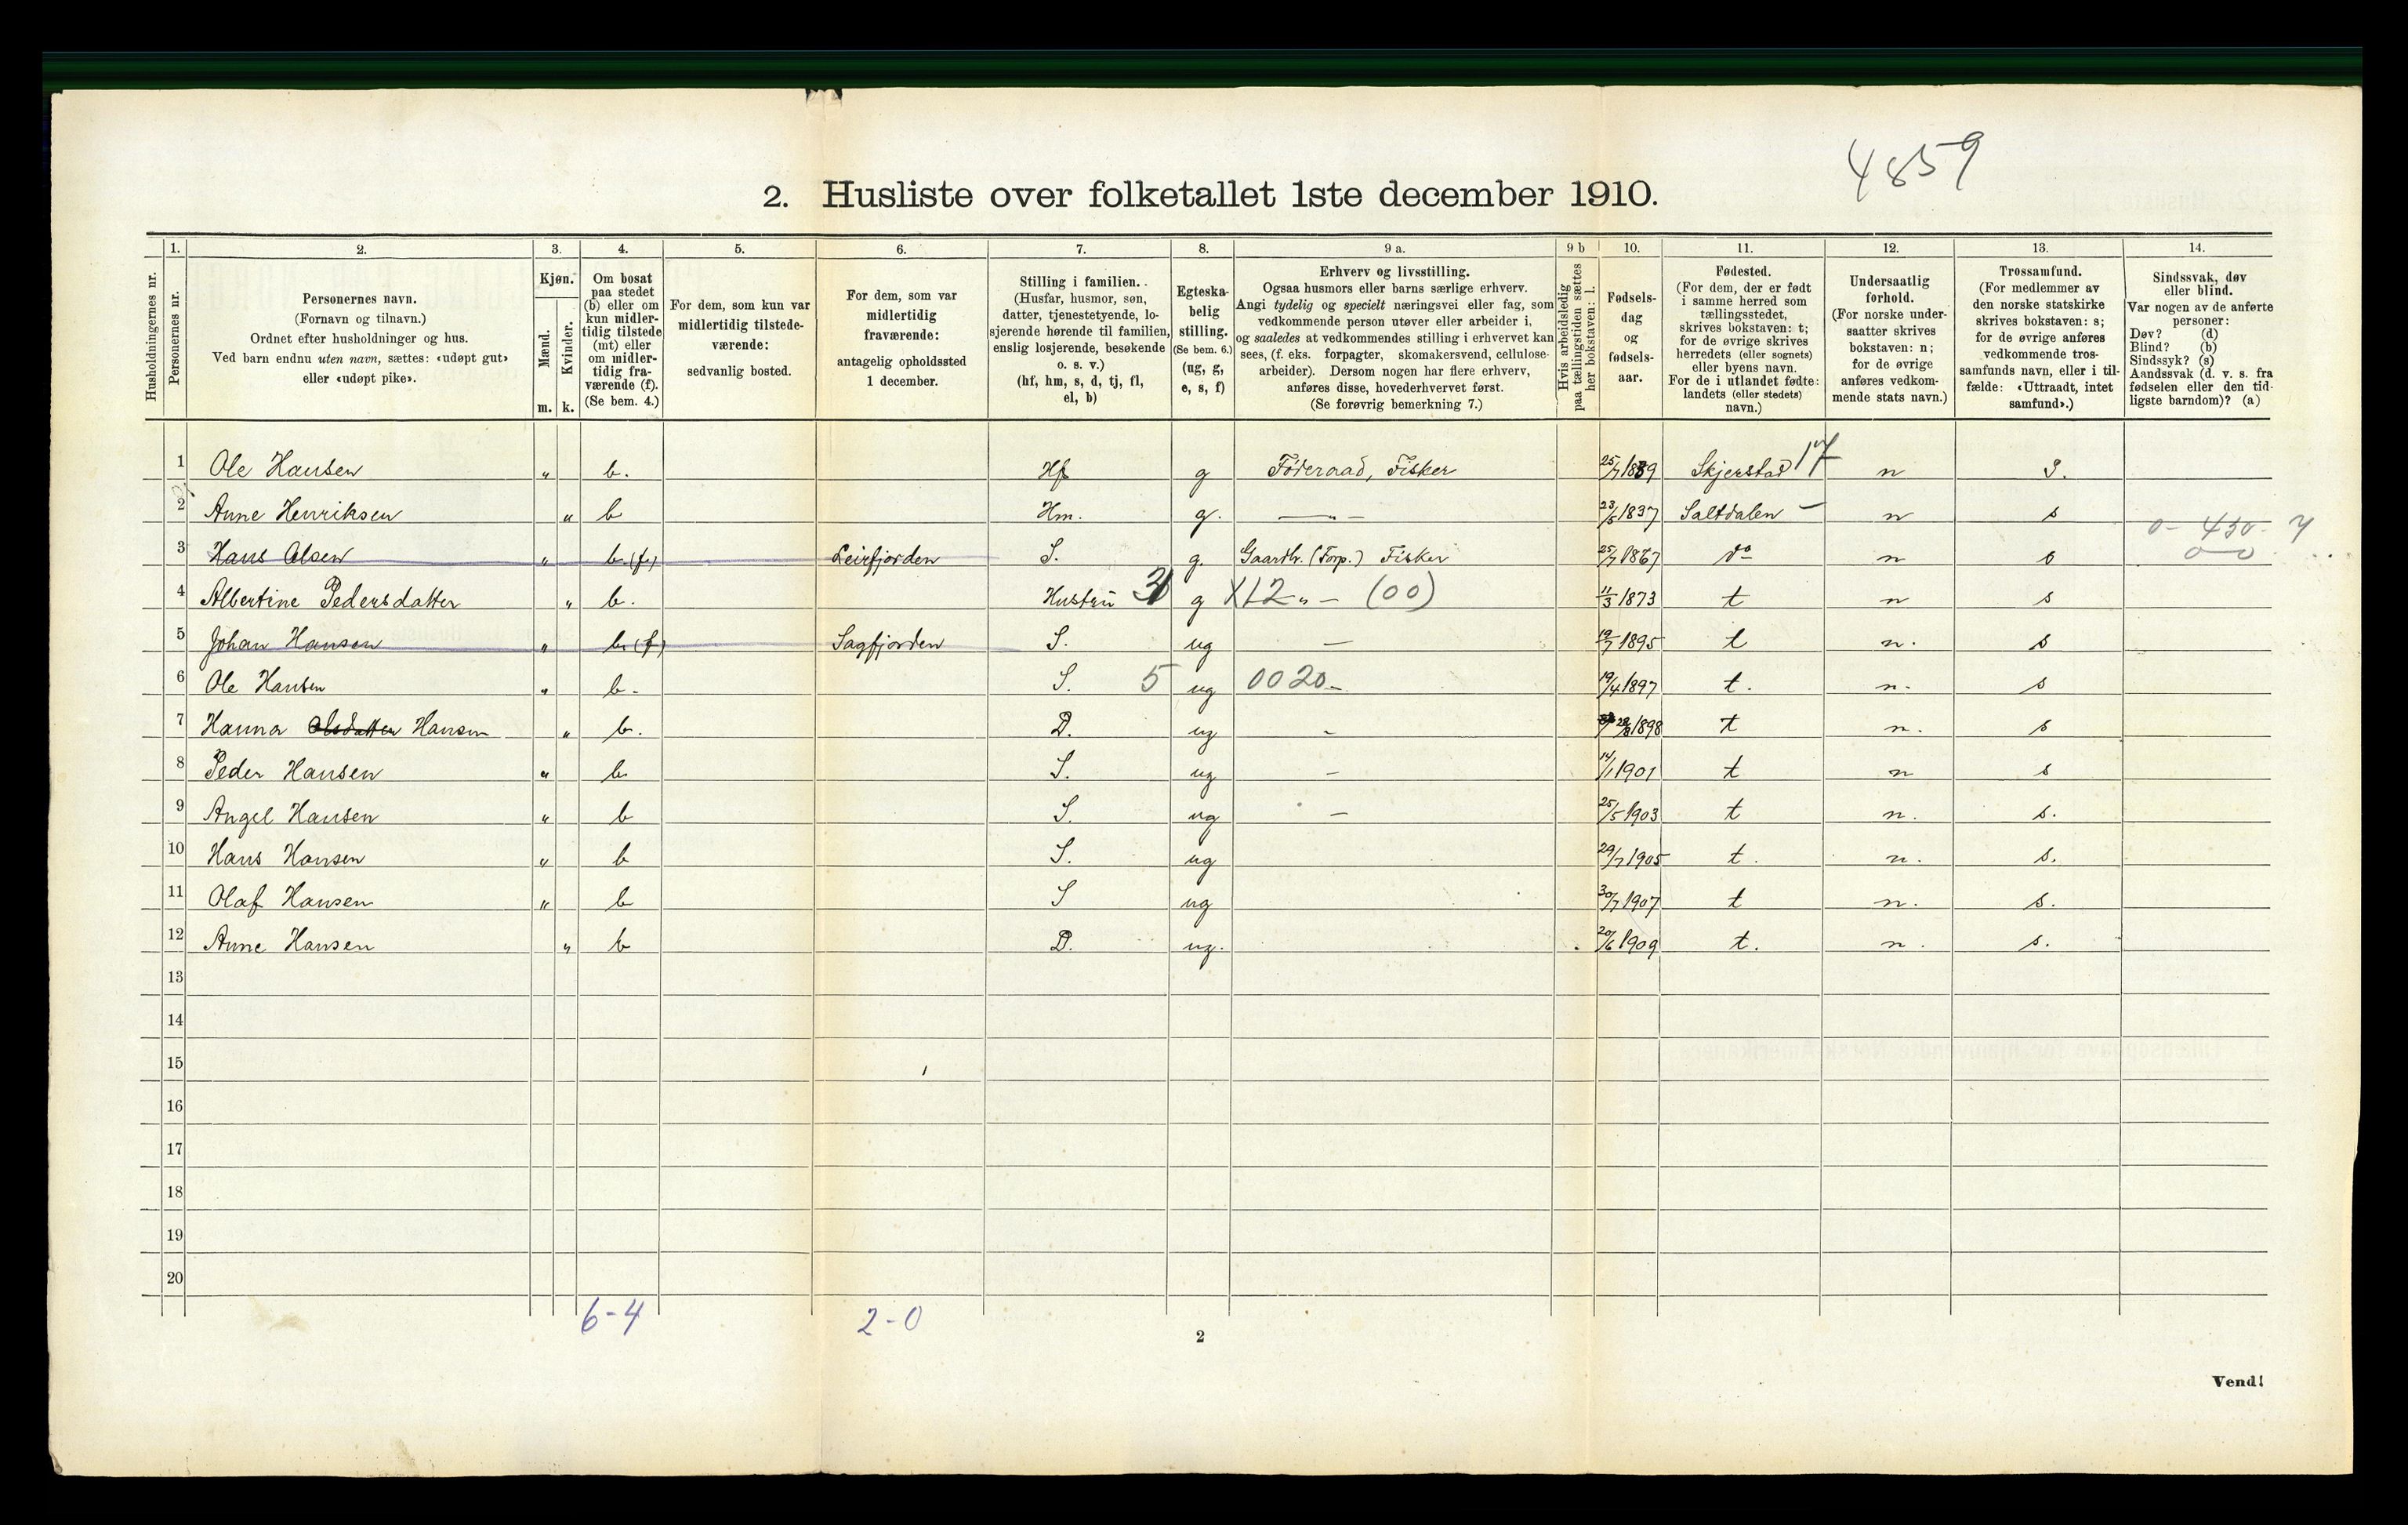 4859
2. Husliste over folketallet 1ste december 1910.
Husholdningernes nr.
1. Personernes nr.
2. Personernes navn. (Fornavn og tilnavn.) Ordnet efter husholdninger og hus. Ved barn endnu uten navn, sættes: «udøpt gut» eller «udøpt pike».
3. Kjøn. Mænd. m. Kvinder. k.
4. Om bosat paa stedet (b) eller om kun midlertidig tilstede (mt) eller om midlertidig fraværende (f). (Se bem. 4.)
5. For dem, som kun var midlertidig tilstedeværende: sedvanlig bosted.
6. For dem, som var midlertidig fraværende: antagelig opholdssted 1 december.
7. Stilling i familien. (Husfar, husmor, søn, datter, tjenestetyende, losjerende hørende til familien, enslig losjerende, besøkende o. s. v.) (hf, hm, s, d, tj, fl, el, b)
8. Egteskabelig stilling. (Se bem. 6.) (ug, g, e, s, f)
9 a. Erhverv og livsstilling. Ogsaa husmors eller barns særlige erhverv. Angi tydelig og specielt næringsvei eller fag, som vedkommende person utøver eller arbeider i, og saaledes at vedkommendes stilling i erhvervet kan sees, (f. eks. forpagter, skomakersvend, cellulosearbeider). Dersom nogen har flere erhverv, anføres disse, hovederhvervet først. (Se forøvrig bemerkning 7.)
9 b Hvis arbeidsledig paa tællingstiden sættes her bokstaven: l.
10. Fødselsdag og fødselsaar.
11. Fødested. (For dem, der er født i samme herred som tællingsstedet, skrives bokstaven: t; for de øvrige skrives herredets (eller sognets) eller byens navn. For de i utlandet fødte: landets (eller stedets) navn.)
12. Undersaatlig forhold. (For norske undersaatter skrives bokstaven: n; for de øvrige anføres vedkommende stats navn.)
13. Trossamfund. (For medlemmer av den norske statskirke skrives bokstaven: s; for de øvrige anføres vedkommende trossamfunds navn, eller i tilfælde: «Uttraadt, intet samfund».)
14. Sindssvak, døv eller blind. Var nogen av de anførte personer: Døv? (d) Blind? (b) Sindssyk? (s) Aandssvak (d. v. s. fra fødselen eller den tidligste barndom)? (a)
1 Ole Hansen „ b. Hf g Føderaad, Fisker 25/7 1839 Skjerstad 17 n S.
2 Anne Henriksen „ b Hm. g. — „ — 23/5 1837 Saltdalen – n s
3 Hans Olsen „ b. (f) Leirfjorden S. g. Gaardbr. (Forp.) Fisker 25/7 1867 do n s 0 - 450 - 4 0-0
4 Albertine Pedersdatter „ b. Hustru g X12 „ — (00) 11/3 1873 t n s
5 Johan Hansen „ b (f) Sagfjorden S. ug — 19/7 1895 t n. s
6 Ole Hansen „ b. S. 5 ug 0020 – 19/4 1897 t. n. s
7 Hanna Olsdatter Hansen „ b. D. ug - 28/8 1898 t n. s
8 Peder Hansen „ b S. ug – 14/1 1901 t n s
9 Angel Hansen „ b S. ug — 25/5 1903 t n. s.
10 Hans Hansen „ b S. ug 29/7 1905 t. n. s.
11 Olaf Hansen „ b S ug 30/7 1907 t n. s.
12 Anne Hansen „ b D. ug. 20/6 1909 t. n. s.
13
14
15
16
17
18
19
20
6-4 2-0
2
Vend!